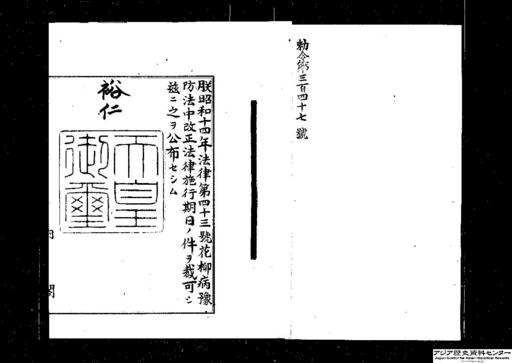 勅令第三百四十七號
朕昭和十四年法律第四十三號花柳病豫
防法中改正法律施行期日ノ件ヲ裁可シ
玆ニ之ヲ公布セシム
裕仁
天皇
御璽
内閣
アジア歴史資料センター
Japan Center for Asian Historical Records